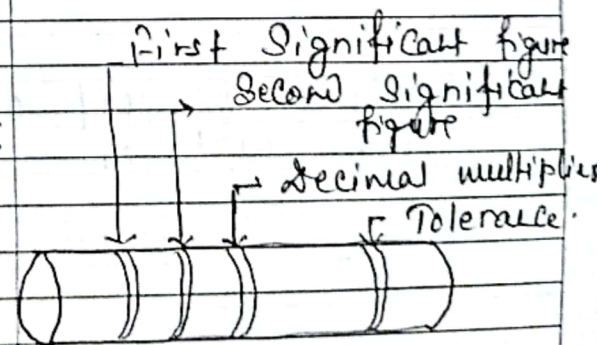 First Significant figure
Second Significant
figure
Decimal multiplies
Tolerance.